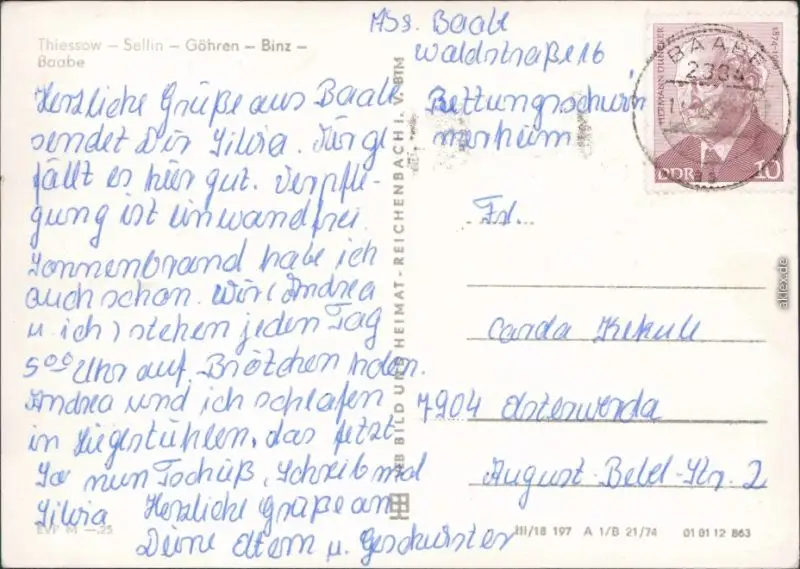 Thiessow – Sellin – Göhren – Binz –
Baabe
Herzliche Grüße aus Baabe
sendet Dir Silvia. Mir gefällt
fällt es hier gut. Verpfle-
gung ist einwandfrei.
Sonnenbrand habe ich
auch schon. Wir (Andrea
u. ich) stehen jeden Tag
5⁰⁰ Uhr auf. Brötchen holen.
Andrea und ich schlafen
in Liegestühlen, das fetzt
So nun Tschüß, schreib mal
Silvia Herzliche Grüße an
Deine Eltern u. Geschwister
EVP M –.25
BILD UND HEIMAT · REICHENBACH I. V. BTM
Baabe
Waldstraße 16
Rettungsschwim
merheim
HERMANN DUNCKER
DDR 10
BAABE
Frl.
Carda Kekule
7904 Elsterwerda
August-Bebel-Str. 2
III/18 197 A 1/B 21/74 01 01 12 863
aklex.de